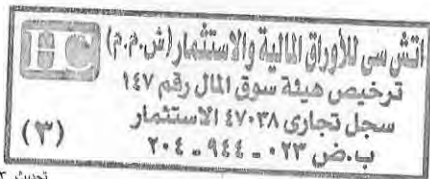 اتش سى للأوراق المالية والاستثمار (ش.م.م)
HC
ترخيص هيئة سوق المال رقم ١٤٧
سجل تجارى ٤٧٠٣٨ الاستثمار
ب.ض ٠٢٣ - ٩٤٤ - ٢٠٤
(٣)
تحديث ٣